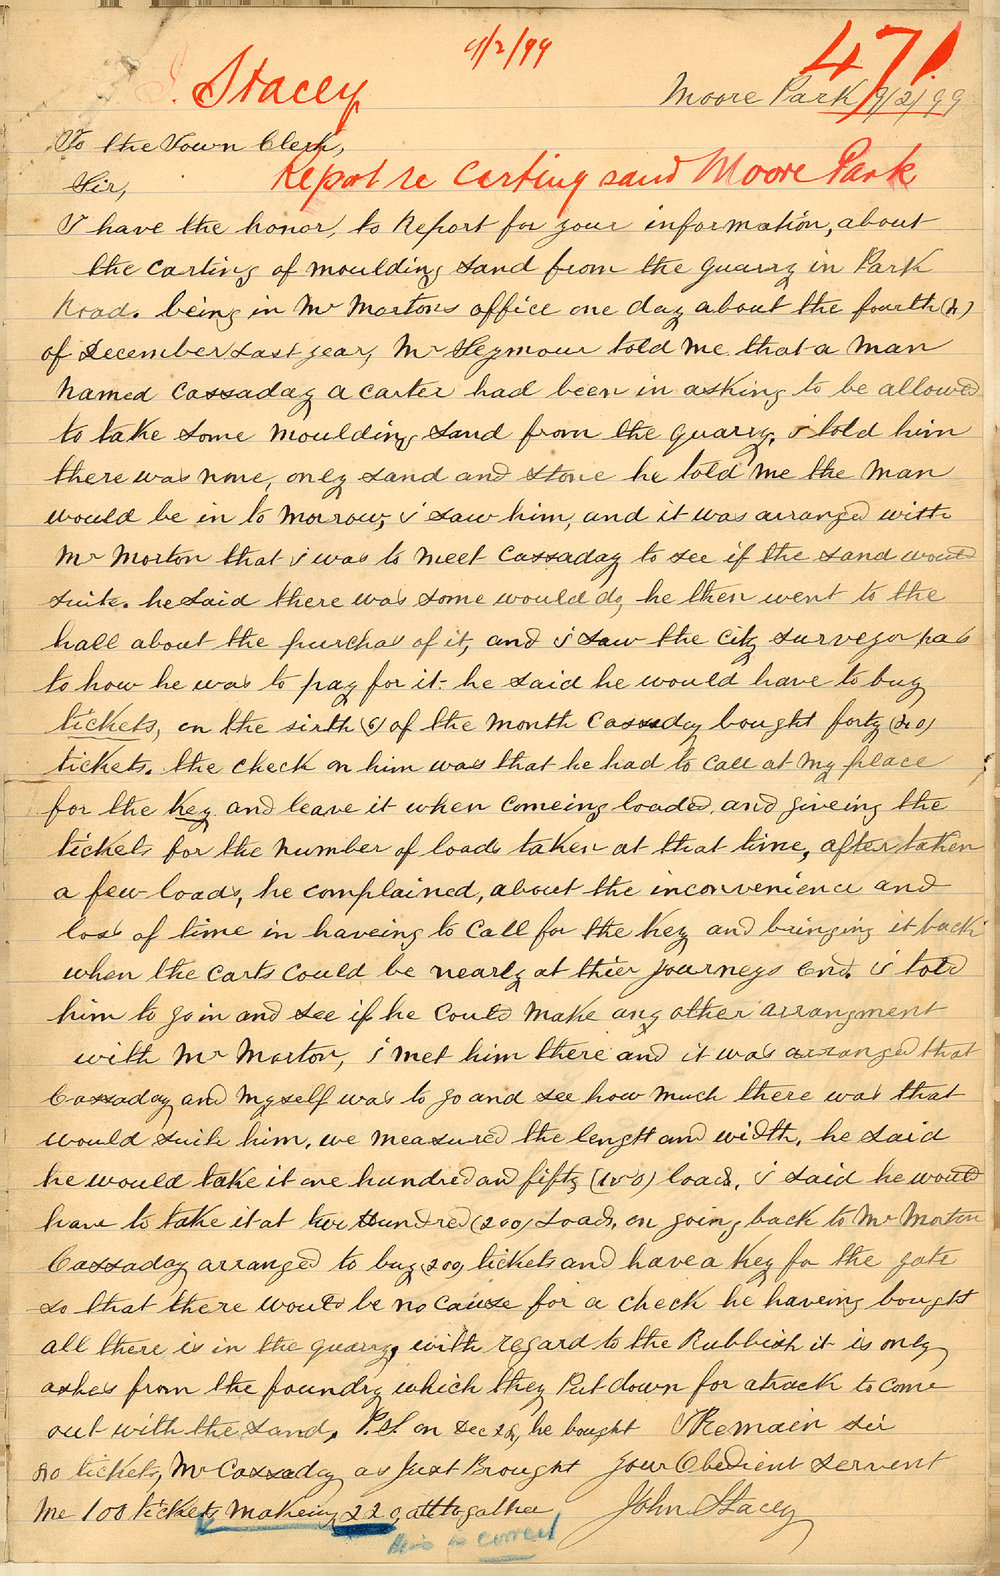 9/2/99
471.
J. Stacey
Moore Park 9/2/99
To the Town Clerk,
Sir,
Report re Carting sand Moore Park
I have the honor, to Report for your information, about
the carting of moulding sand from the quarry in Park
Road. being in Mr Mortons office one day about the fourth (4)
of December Last year, Mr Seymour told me that a man
named Cassaday a carter had been in asking to be allowed
to take some moulding sand from the quarry, i told him
there was none, only sand and stone he told me the man
would be in to morrow, i saw him, and it was arranged with
Mr Morton that i was to meet Cassaday to see if the sand would
suite. he said there was some would do, he then went to the
hall about the purchas of it, and i saw the City surveyor pas
to how he was to pay for it. he said he would have to buy
tickets, on the sixth (6) of the month Cassaday bought forty (40)
tickets. the check on him was that he had to call at my place
for the key and leave it when comeing loaded, and giveing the
tickets for the number of loads taken at that time, after taken
a few loads, he complained, about the inconvenience and
loss of time in haveing to call for the key and bringing it back
when the carts could be nearly at thier journeys end. i told
him to go in and see if he could make any other arrangment
with Mr Morton, i met him there and it was arranged that
Cassaday and myself was to go and see how much there was that
would suite him. we measured the lengtt and width, he said
he would take it one hundred and fifty (150) loads, i said he would
have to take it at two Hundred (200) Loads, on going back to Mr Morton
Cassaday arranged to buy 200, tickets and have a key for the gate
so that there would be no cause for a check he haveing bought
all there is in the quarry, with regard to the Rubbish it is only
ashes from the foundry which they Put down for a track to come
out with the sand, P.S. on Dec 28, he bought I Remain Sir
80 tickets, Mr Cassaday as Just Brought your Obedient Servent
me 100 tickets makeing 220 alltogather John Stacey
this is correct